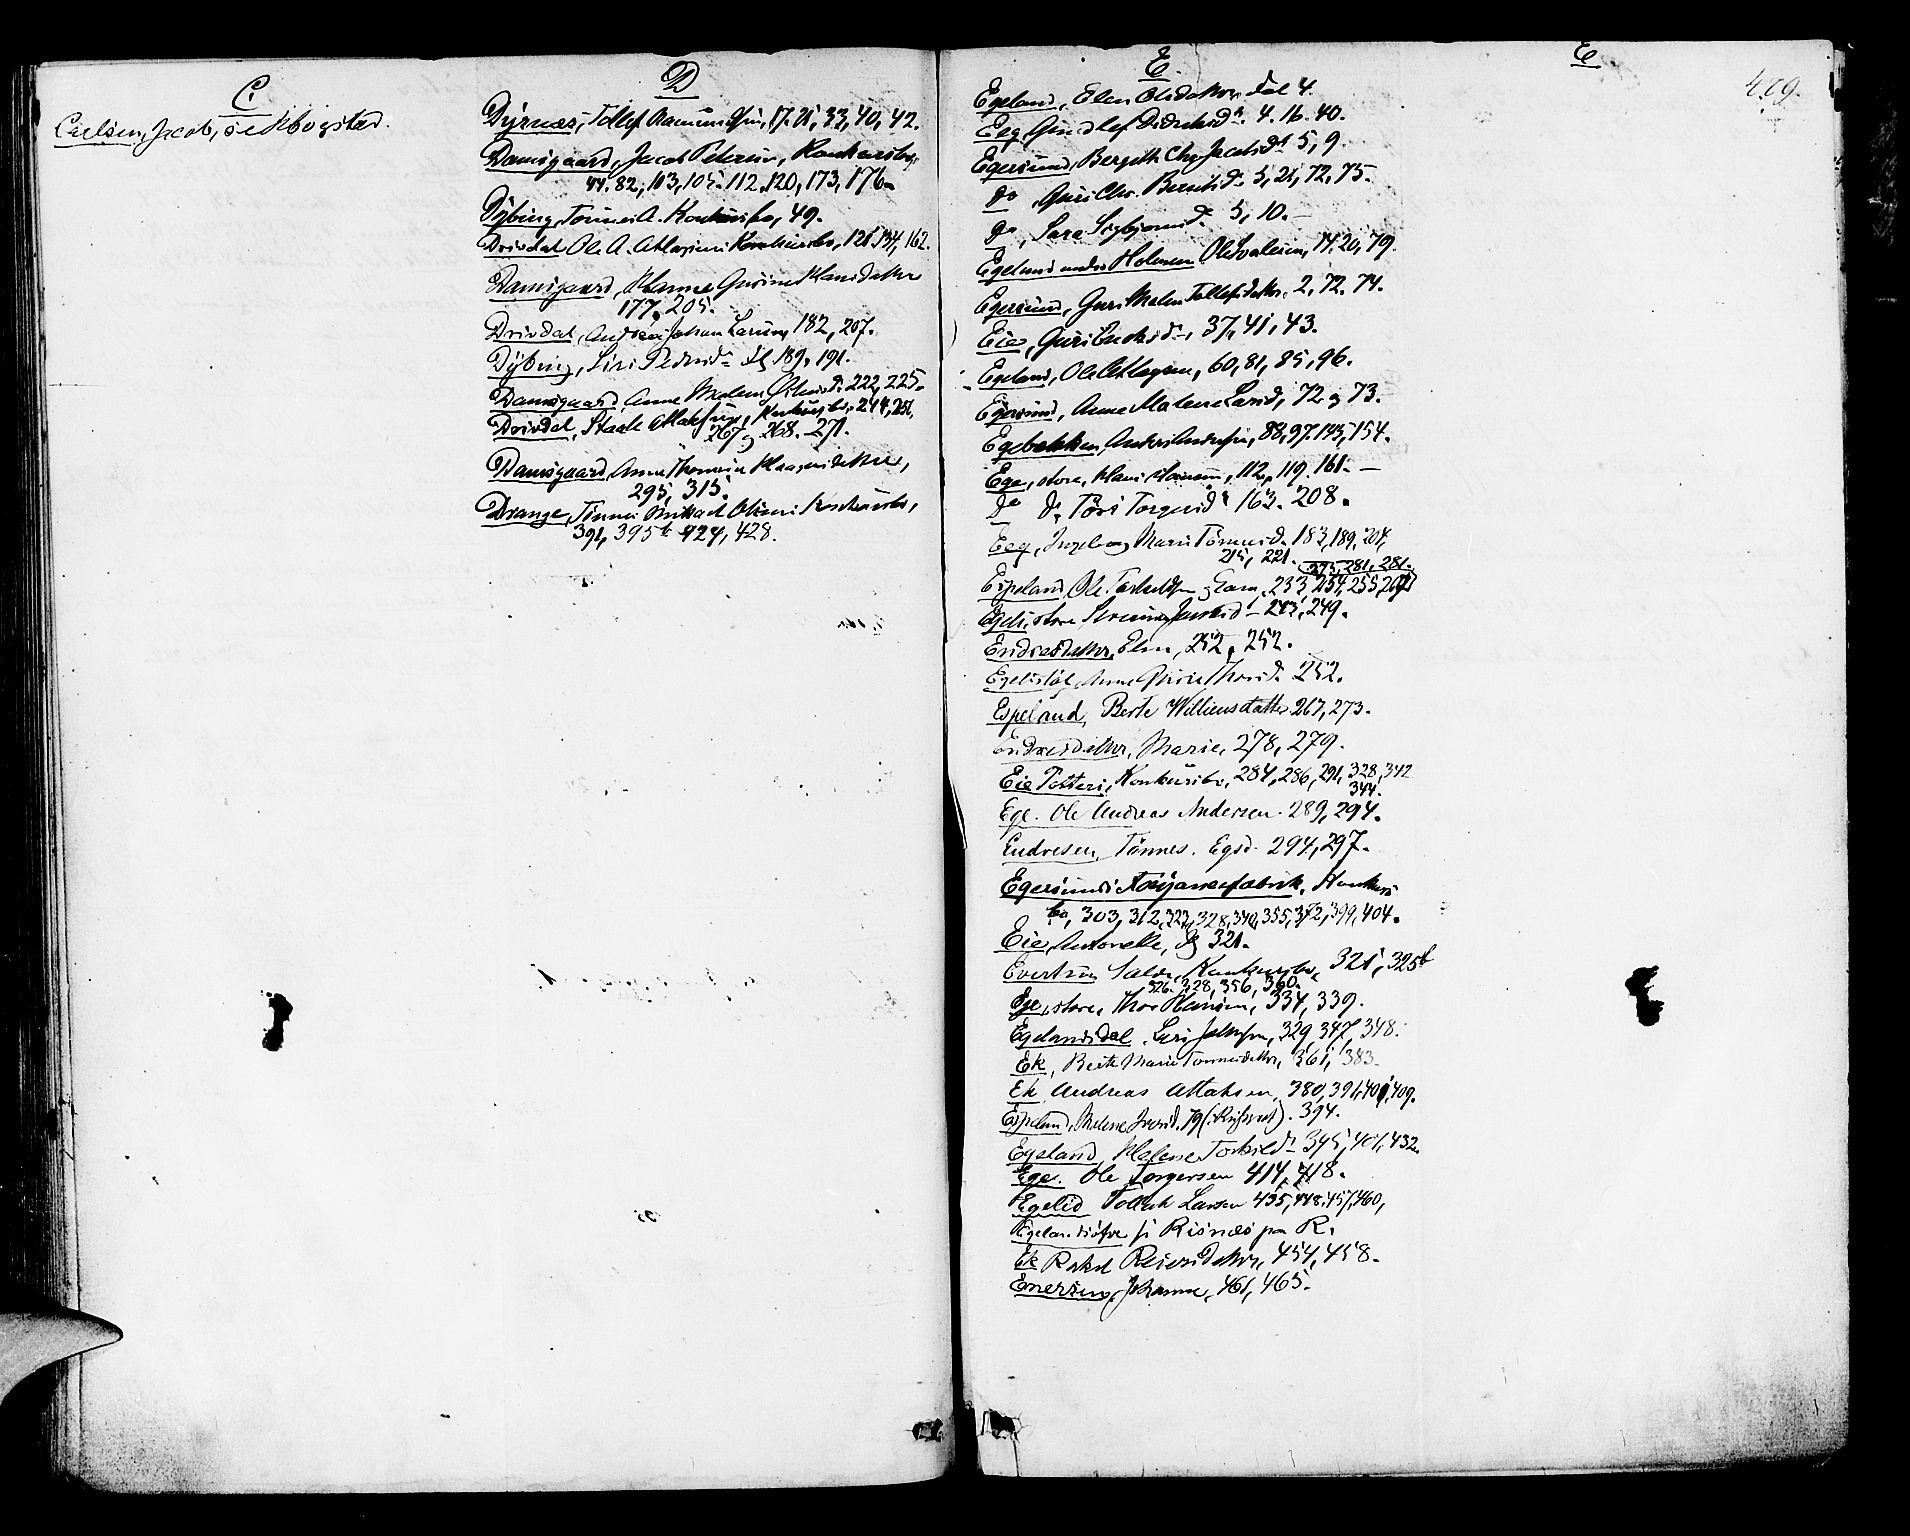 C.
Carlsen, Jacob, se Kbogstad.
D
Dyrnæs, Tollef Aamundsen, 17. 21, 33, 40, 42.
Damsgaard, Jacob Petersen, Konkursbo,
44. 82, 103, 105. 112. 120, 173, 176.
Dybing, Tønnes A. Konkursbo, 49.
Drivdal Ole A. Atlaksens Konkursbo, 121. 134, 162.
Damsgaard, Hanne Gurine Hansdatter
177, 205.
Drivdal, Andreas Johan Larsen, 182, 207.
Dybing, Siri Pedersd. 189, 191.
Damsgaard, Anne Malene 222, 225.
Drivdal, Staale Atlaksens Konkursbo, 244, 251,
267, 268. 271.
Damsgaard, Anne Thomine Klausdatter,
295, 315.
Drange, Tønnes Mikkael Olsens Konkursbo,
391, 395 b 424, 428.
E.
Egeland, Elen Olsdatter dal 4.
Eeg, Gundlef Didriksd. 4. 16. 40.
Egersund, Bergitte Chr. Jacobsd. 5, 9.
do, Guri Chr. Berntsd. 5, 21, 72, 75.
do, Sara Sigbjørnsd. 5, 10.
Egeland under Holmen Ole Svalesen, 14. 20, 79.
Egersund, Guri Malene Tollefsdatter, 2, 72, 74.
Eie, Guri 37, 41, 43.
Egeland, Ole Atlagsen, 60, 81, 85, 96.
Egersund, Anne Malene Larsd, 72 og 73.
Egebakken, Anders Andersen, 88, 97. 145, 154.
Ege, store, Hans Hansen, 112, 119. 161.
do do Tøri Torgersd. 163. 208.
Eeg, Ingeborg Marie Tønnesd. 183, 189, 204,
215, 221.
275, 281, 281.
Espeland, Ole Tarkeldsen 233, 254, 255, 267
Egeli, store 243, 249.
Endresdatter, Elen, 252, 252.
Anne Thorsd. 252.
Espeland, Berte Williensdatter 267, 273.
Endresdatter, Marie, 278, 279.
Eie Potteri, Konkursbo, 284, 286, 291, 328, 342
344.
Ege. Ole Andreas Andersen. 289, 294.
Endresen, Tønnes. Egsd. 294, 297.
Egersunds Fayancefabrik, Konkurs
bo, 303, 312, 323, 328, 340, 355, 372, 399, 404.
Eie, Antonette, 321.
Evertsen Konkursbo, 321, 325 b
326. 328, 356, 360.
Ege, store, Thor Hansen, 334, 339.
Egelandsdal, 329, 347, 348.
Ek, Berte Marie Tønnesdatter, 361, 383.
Ek Andreas Attaksen, 380, 391, 401, 409.
Espeland, Malene 394.
Egeland, Helene Torkild. 395, 401, 432.
Ege. Ole Torgersen 414, 418.
Egelid Tollak Larsen 435, 448. 457, 460,
Risnæs paa R.
Ek Rakel Reiersdatter, 454, 458.
Enersen, Johanne, 461, 465.
E
479.